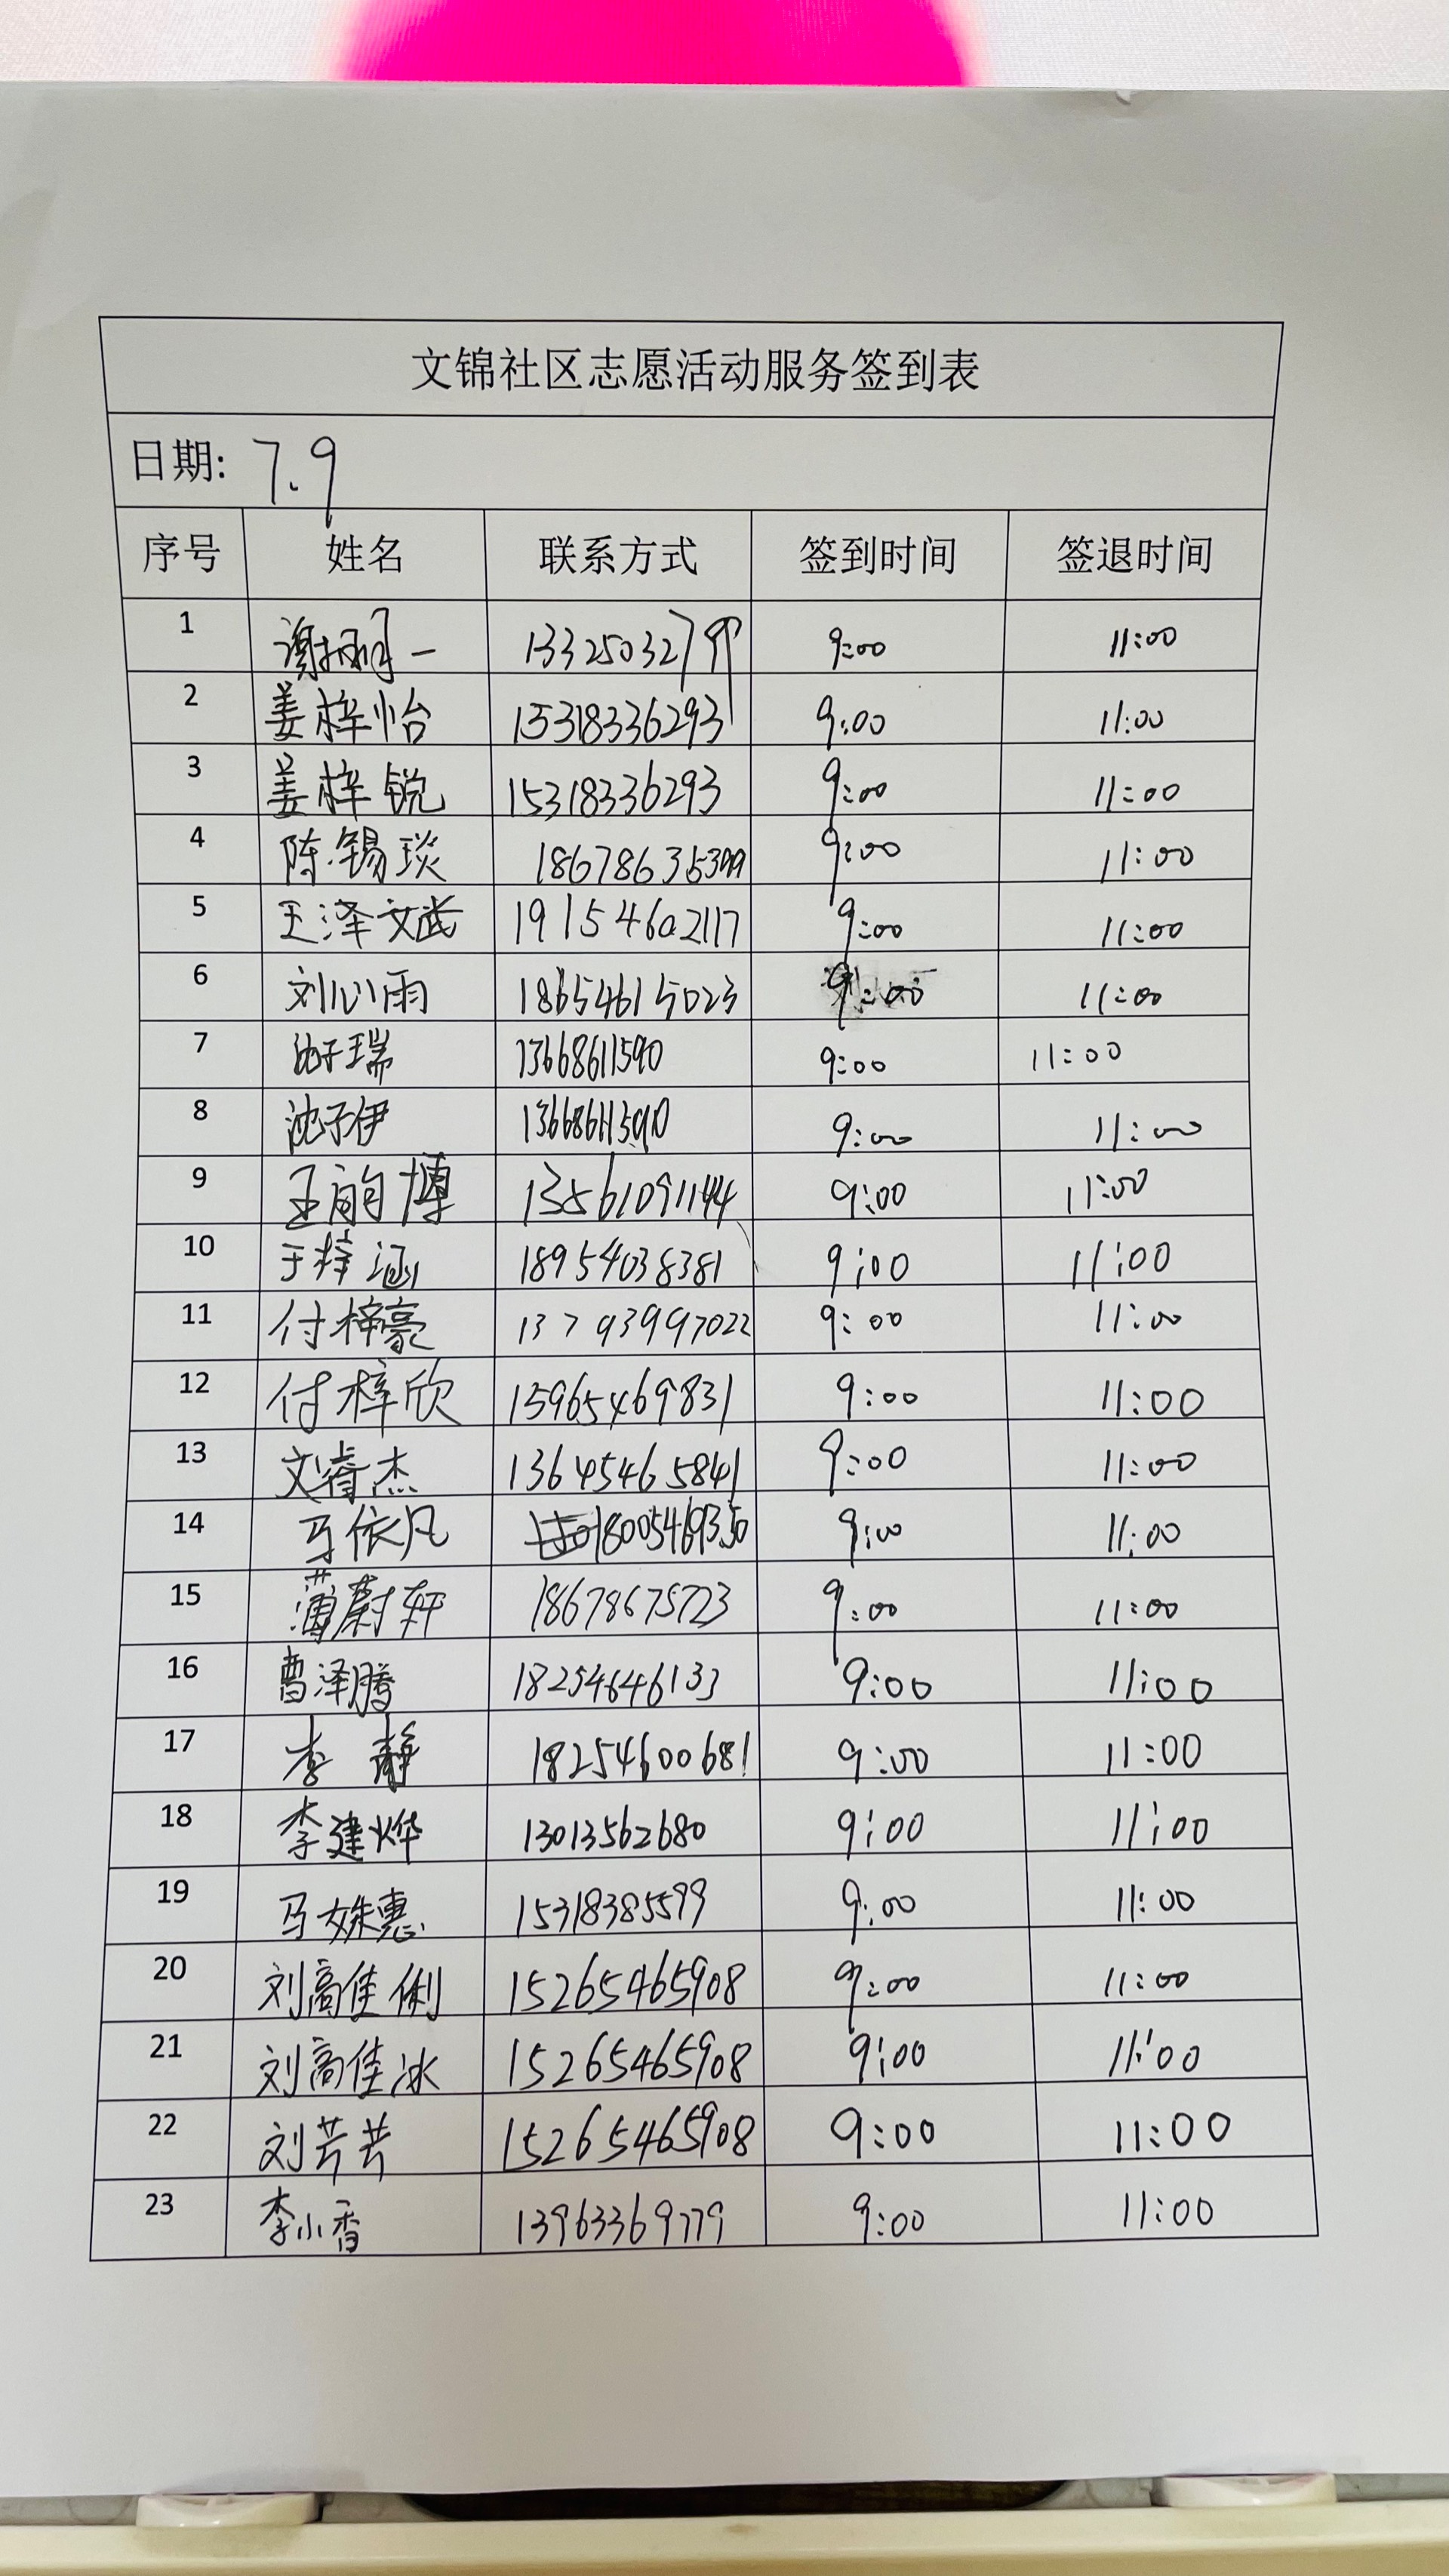 文锦社区志愿活动服务签到表
日期: 7.9
序号 姓名 联系方式 签到时间 签退时间
1 9:00 11:00
2 姜梓怡 15318336293 9:00 11:00
3 姜梓锐 15318336293 9:00 11:00
4 陈锡琰 9:00 11:00
5 王泽文武 19154602117 9:00 11:00
6 刘心雨 18654615023 9:00 11:00
7 沈子瑞 13668611590 9:00 11:00
8 沈子伊 13668611590 9:00 11:00
9 王韵博 13561091144 9:00 11:00
10 于梓涵 18954038381 9:00 11:00
11 付梓豪 13793997022 9:00 11:00
12 付梓欣 15965469831 9:00 11:00
13 文睿杰 13645465841 9:00 11:00
14 马依凡 18005469350 9:00 11:00
15 薄蔚轩 18678675723 9:00 11:00
16 曹泽腾 18254646133 9:00 11:00
17 李静 18254600681 9:00 11:00
18 李建烨 13013562680 9:00 11:00
19 马姝惠 15318385599 9:00 11:00
20 刘高佳俐 15265465908 9:00 11:00
21 刘高佳冰 15265465908 9:00 11:00
22 刘芸芸 15265465908 9:00 11:00
23 李小香 13963369779 9:00 11:00